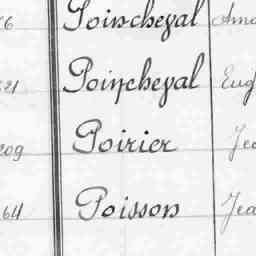 Poincheval
Poincheval Eug
209 Poirier Jea
64 Poisson Jea